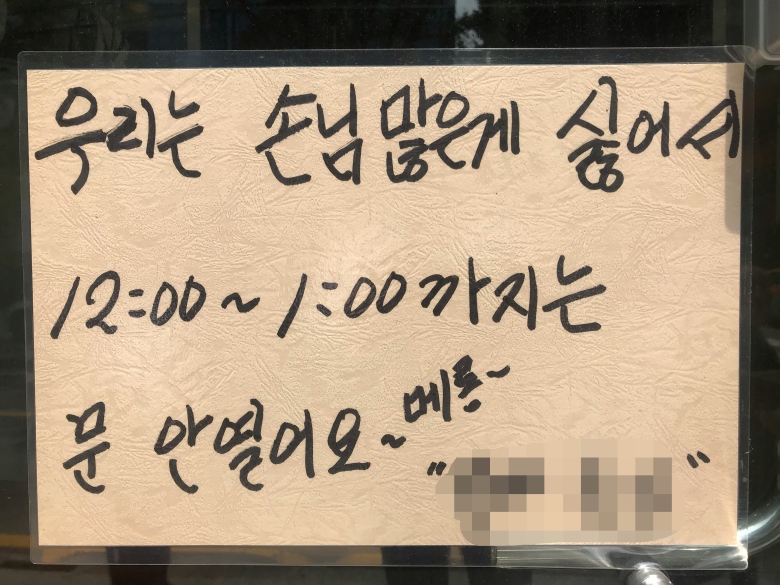 우리는 손님 많은게 싫어서
12:00~1:00까지는
문 안열어요~메롱~
"
"